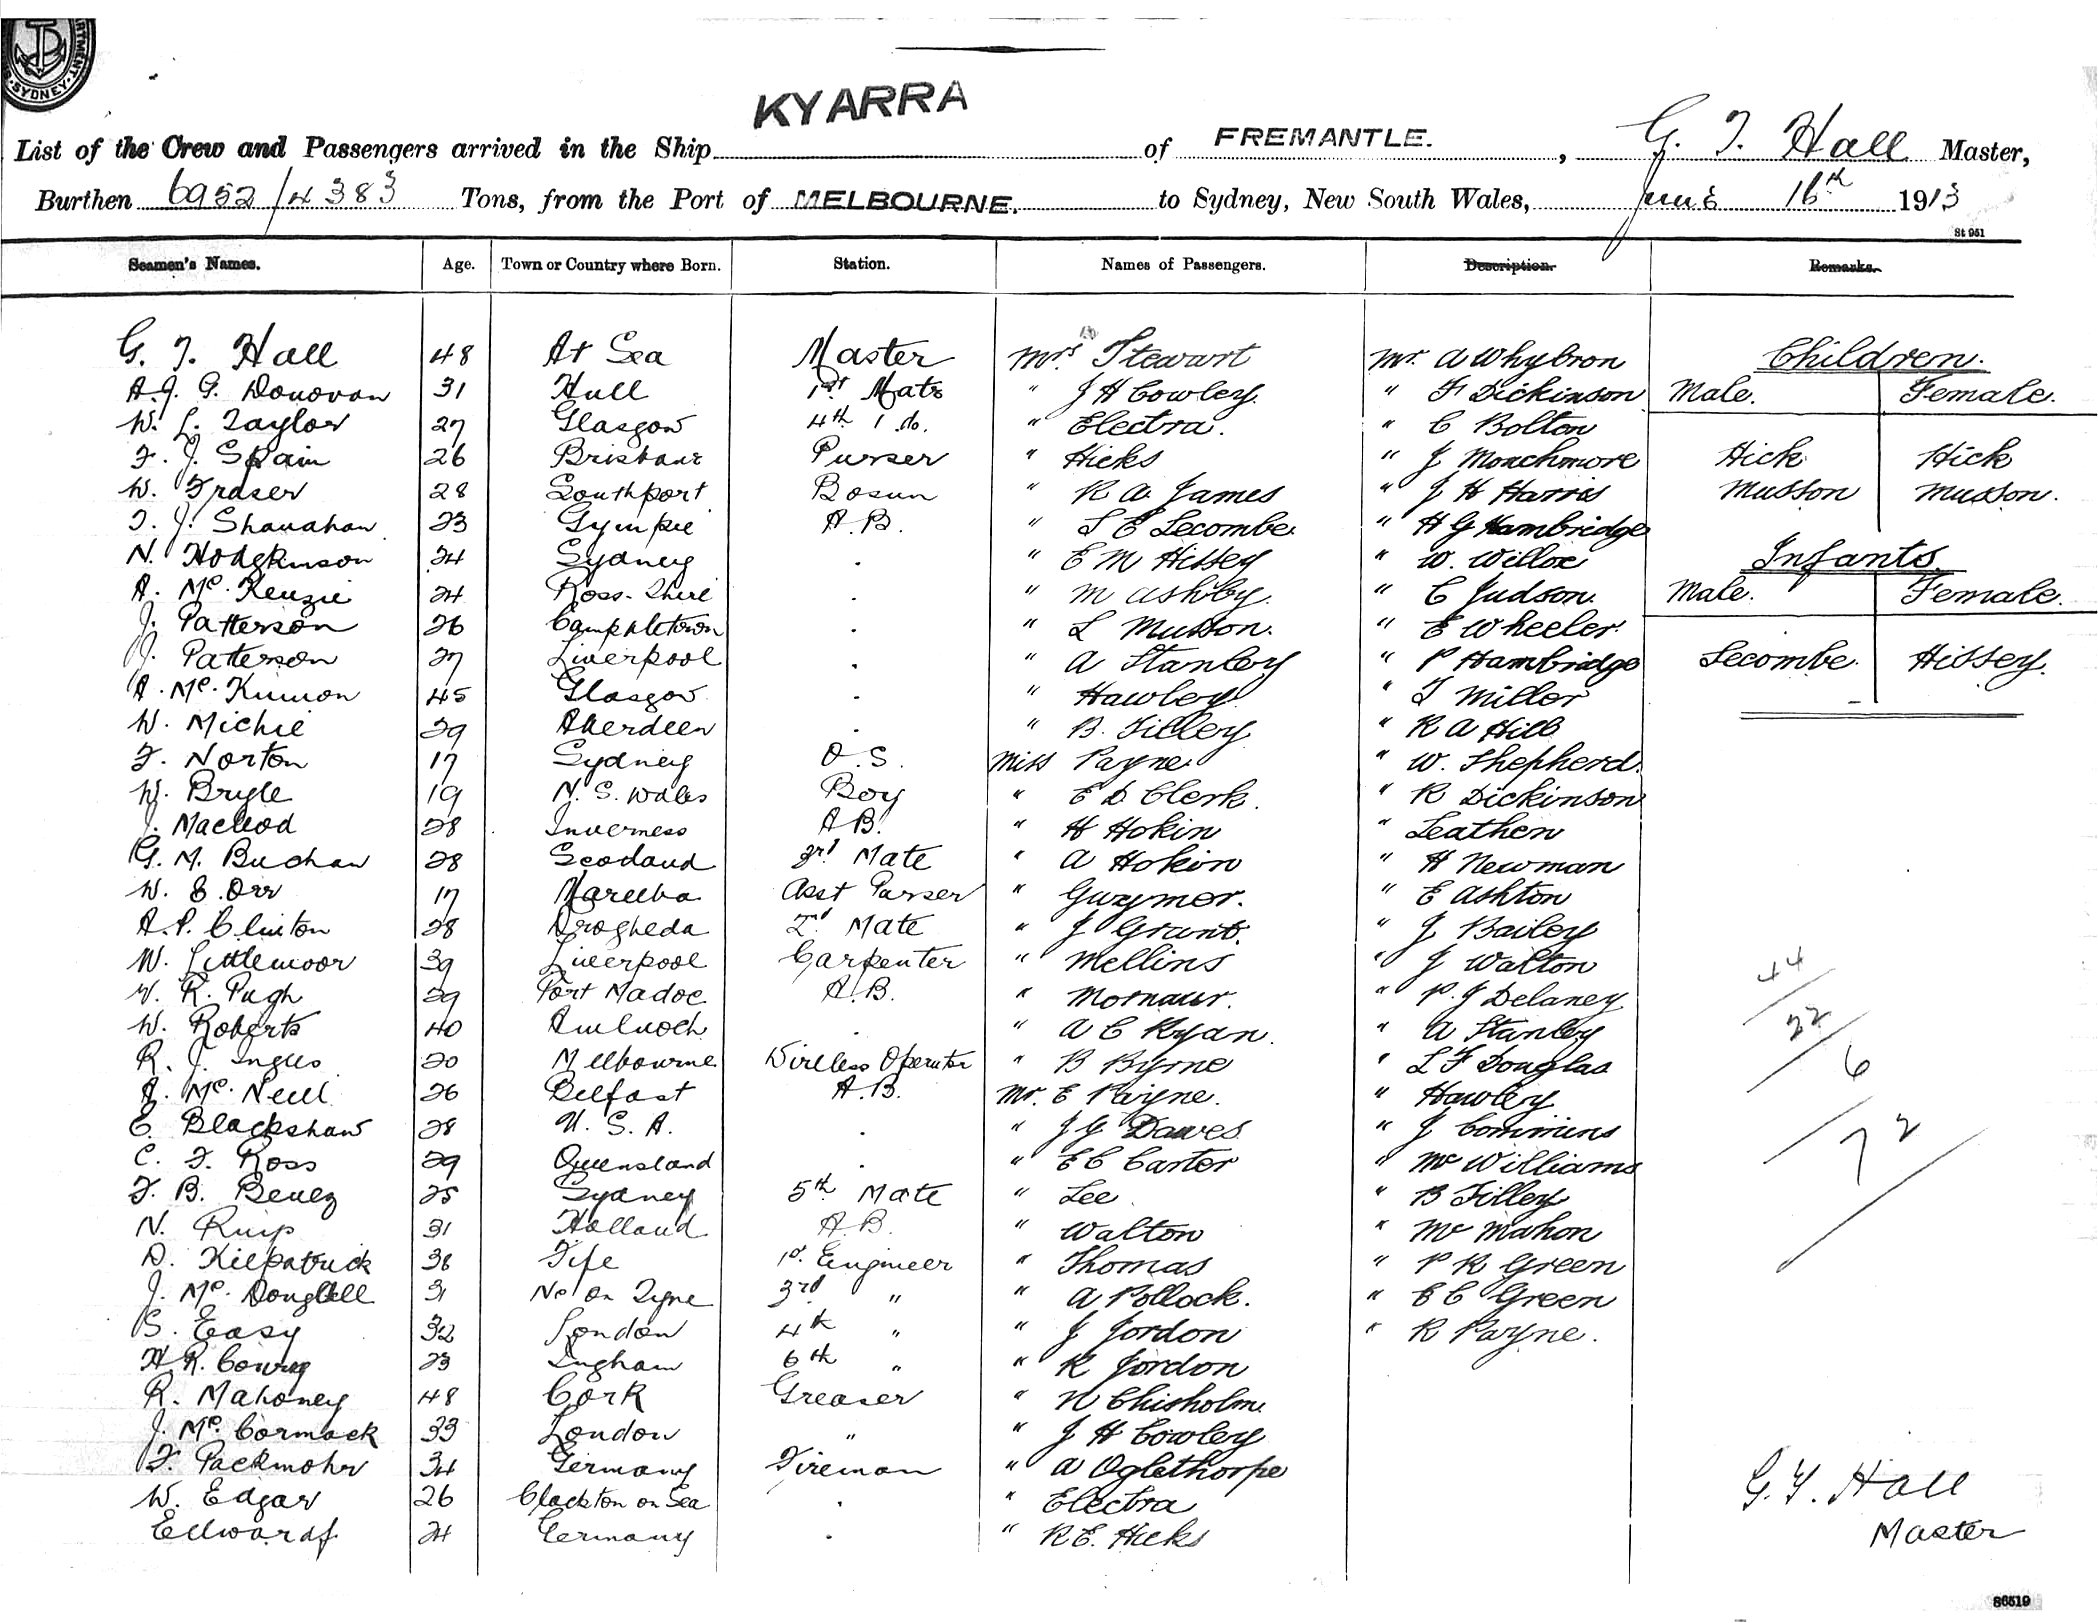 SYDNEY
KYARRA
List of the Crew and Passengers arrived in the Ship of FREMANTLE. , G. T. Hall Master,
Burthen 6952/4383 Tons, from the Port of MELBOURNE. to Sydney, New South Wales, June 16th 1913
St 951
Seamen's Names. Age. Town or Country where Born. Station. Names of Passengers. Description. Remarks.
G. T. Hall 48 At Sea Master Mrs Stewart Mr. A Whybron Children.
A. J. G. Donovan 31 Hull 1st Mate " J H Cowley. " F Dickinson Male. Female.
W. L. Taylor 27 Glasgow 4th do. " Electra. " C Bolton
F. J. Spain 26 Brisbane Purser " Hicks " J Monchmore Hick Hick
W. Fraser 28 Southport Bosun " R A James " J H Harris Musson Musson.
T. J. Shanahan 23 Gympie A.B. " L E Lecombe " H G Hambridge
N. Hodgkinson 24 Sydney . " E M Hissey " W. Willox Infants.
A. Mc. Kenzie 24 Ross-Shire . " M Ashby. " C Judson. Male. Female.
J. Patterson 26 Campbletown . " L Musson. " E Wheeler.
J. Patterson 27 Liverpool . " A Stanley " P Hambridge Lecombe. Hissey.
A. Mc. Kinnon 45 Glasgow . " Hawley " T Miller
W. Michie 29 Aberdeen . " B. Tilley " R A Hill
F. Norton 17 Sydney O.S. Miss Payne " W. Shepherd.
W. Bryle 19 N.S. Wales Boy " E D Clerk. " R Dickinson
J. Macleod 28 Inverness A.B. " H Hokin " Leathen
G. M. Buchan 28 Scotland 3rd Mate " A Hokin " H Newman
W. E. Orr 17 Mareeba Asst Purser " Gwymer. " E Ashton
A. P. Clinton 28 Drogheda 2d Mate " J Grant. " J Bailey
W. Littlemoor 39 Liverpool Carpenter " Mellins " J Walton 44
W. R. Pugh 29 Port Madoc A.B. " Mornaur. " P. J Delaney
W. Roberts 40 Amlwch . " A C Ryan. " A Stanley 22
R. J. Ingles 20 Melbourne Wireless Operator " B Byrne " L F Douglas 6
A. Mc. Neill 26 Belfast A.B. Mr. E Payne. " Hawley
E. Blackshaw 28 U.S.A. . " J G Dawes " J Commins 72
C. F. Ross 29 Queensland . " E C Carter " Mc Williams
F. B. 25 Sydney 5th Mate " Lee " B Tilley
N. Ruip 31 Holland A.B. " Walton " Mc Mahon
D. Kilpatrick 38 Fife 1st Engineer " Thomas " P R Green
J. Mc. Dougall 31 Nc on Tyne 3rd " " A Pollock. " E C Green
S. Easy 32 London 4th " " J Jordon " R Payne.
H. R. 23 Ingham 6th " " R Jordon
R. Mahoney 48 Cork Greaser " N Chisholm.
J. Mc. Cormack 33 London " " J H Cowley
F. Packmohr 34 Germany Fireman " A Oglethorpe G. T. Hall
W. Edgar 26 Clackton on Sea . " Electra
24 Germany . " R. E. Hicks Master
86519